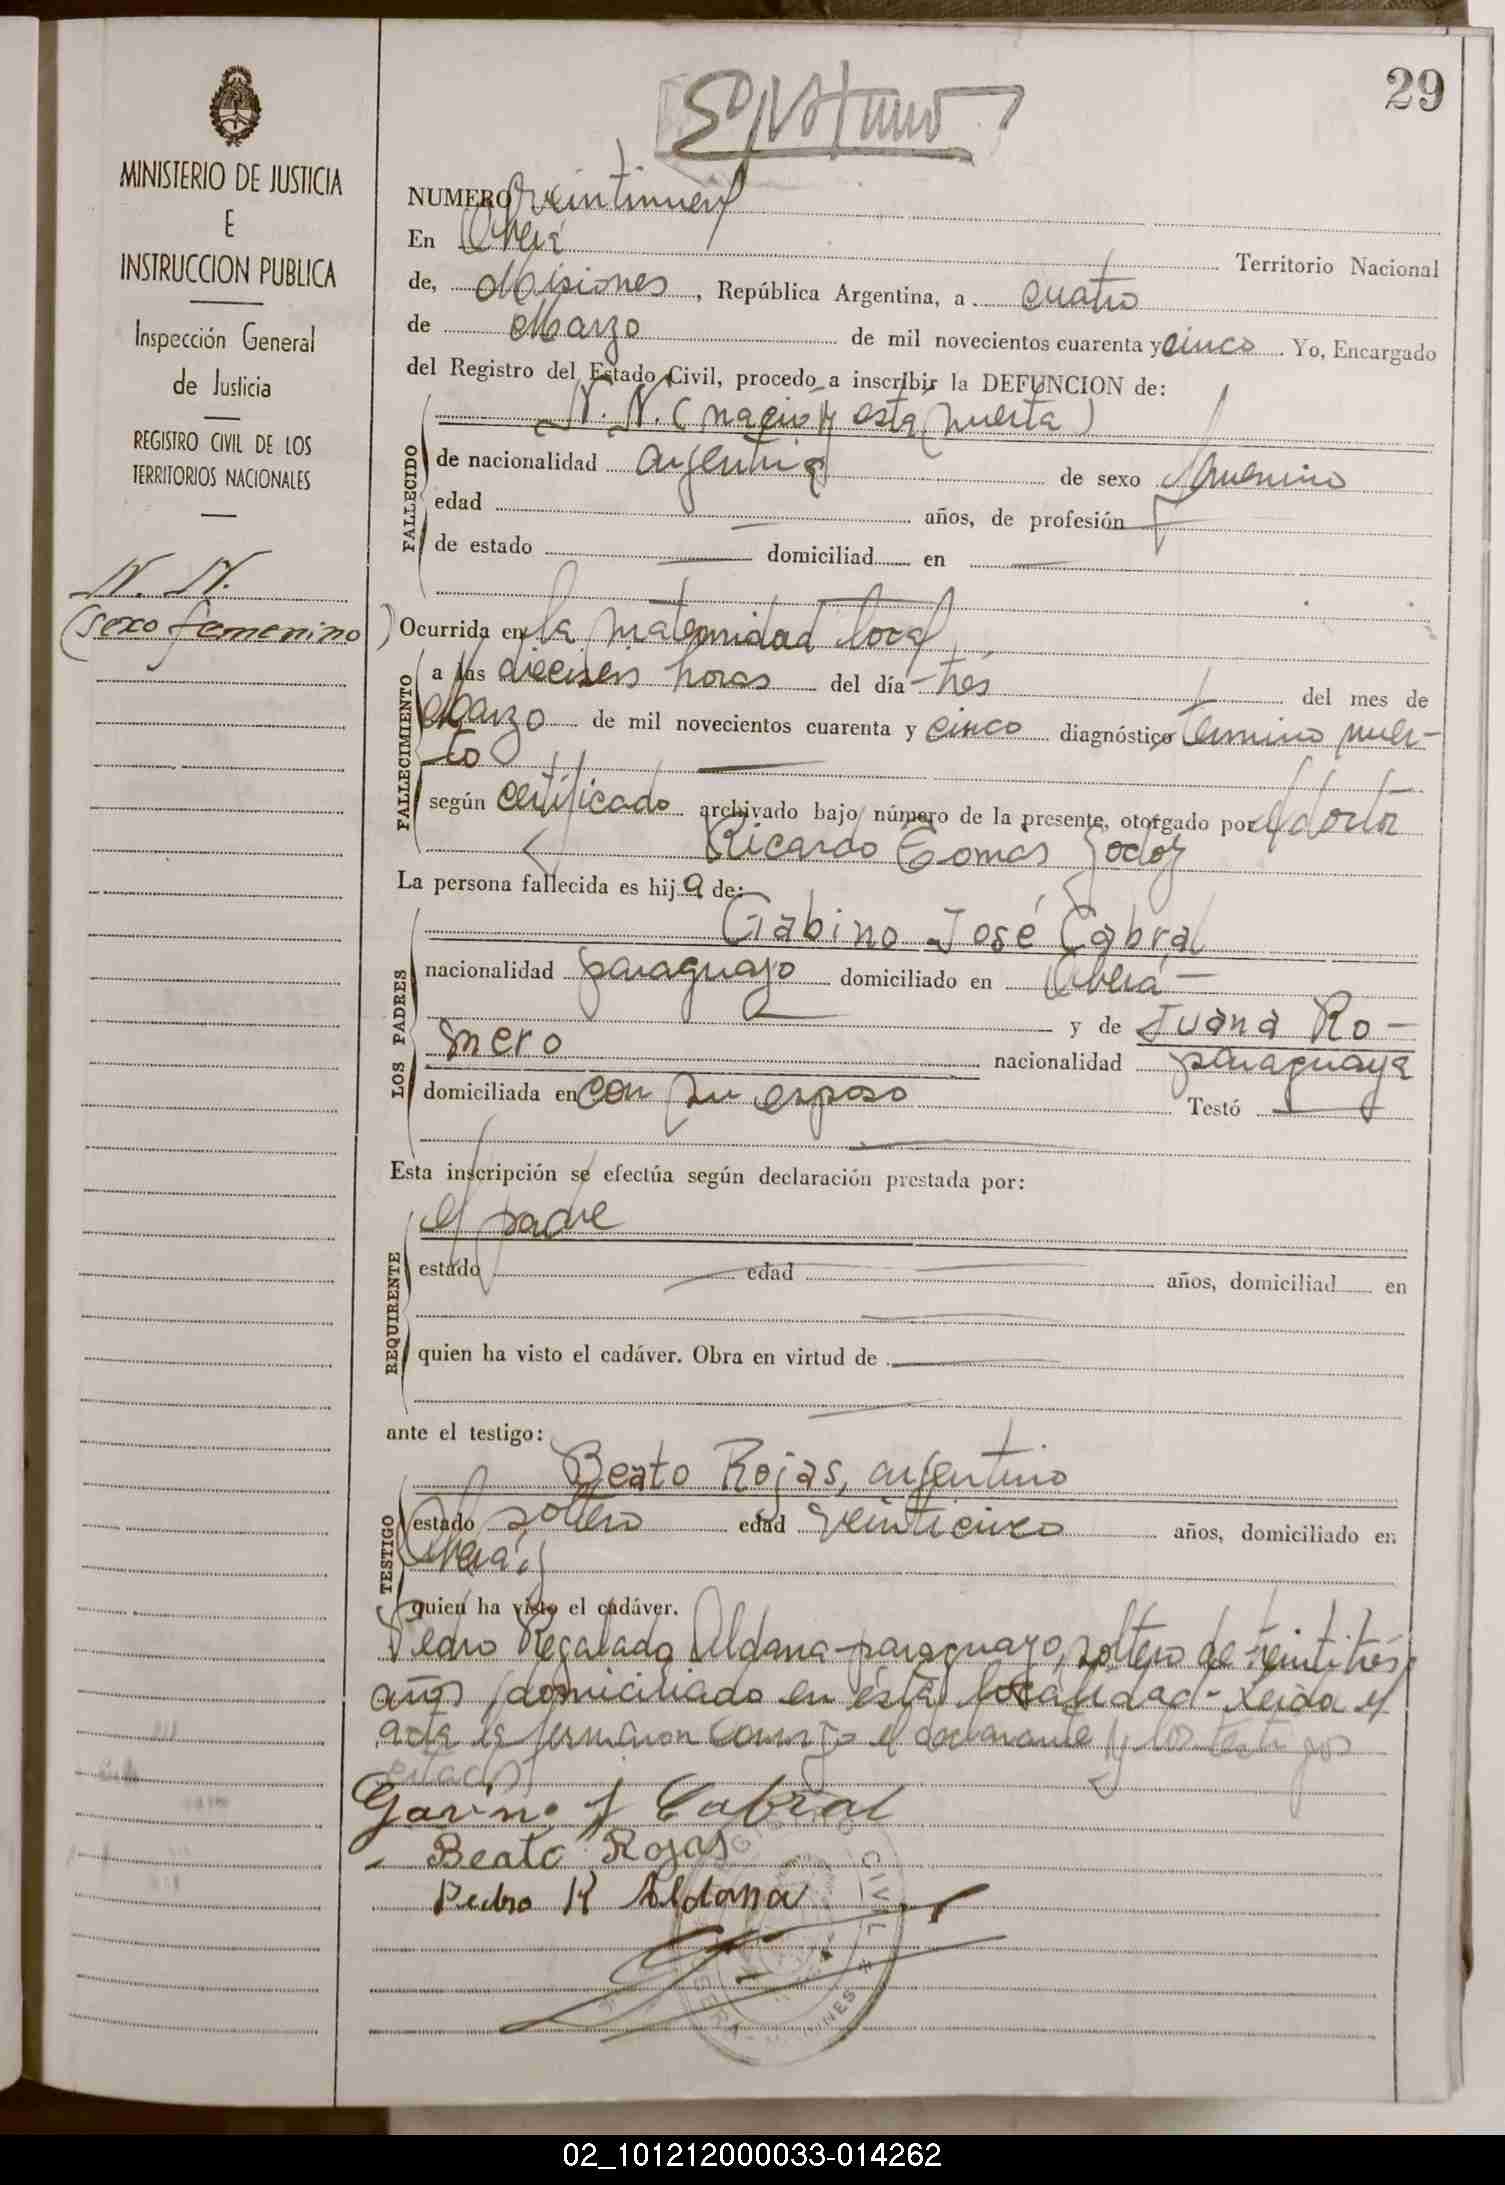 29
MINISTERIO DE JUSTICIA
E
INSTRUCCION PUBLICA
Inspección General
de Justicia
REGISTRO CIVIL DE LOS
TERRITORIOS NACIONALES
N. N.
(sexo femenino)
NUMERO Veintinueve
En Oberá Territorio Nacional
de, Misiones, República Argentina, a cuatro
de Marzo de mil novecientos cuarenta y cinco. Yo, Encargado
del Registro del Estado Civil, procedo a inscribir la DEFUNCION de:
FALLECIDO
N. N. (nació y esta muerta)
de nacionalidad argentina de sexo femenino
edad años, de profesión
de estado domiciliad en
Ocurrida en la maternidad local
FALLECIMIENTO
a las dieciseis horas del día tres del mes de
Marzo de mil novecientos cuarenta y cinco diagnóstico termino muer-
to
según certificado archivado bajo número de la presente, otorgado por el doctor
Ricardo Tomas Godoy
La persona fallecida es hija de:
LOS PADRES
Gabino José Cabral
nacionalidad paraguayo domiciliado en Oberá
y de Juana Ro-
mero nacionalidad paraguaya
domiciliada en con su esposo Testó
Esta inscripción se efectúa según declaración prestada por:
REQUIRENTE
el padre
estado edad años, domiciliad en
quien ha visto el cadáver. Obra en virtud de
ante el testigo:
TESTIGO
Beato Rojas, argentino
estado soltero edad veinticinco años, domiciliado en
Oberá y
quien ha visto el cadáver.
Pedro Regalado Aldana paraguayo, soltero de veintitrés
años domiciliado en ésta localidad - Leida el
acta la firmaron conmigo el declarante y los testigos
citados
Gavino J Cabral
Beato Rojas
Pedro R Aldana
REGISTRO CIVIL
OBERA - MISIONES
02_101212000033-014262